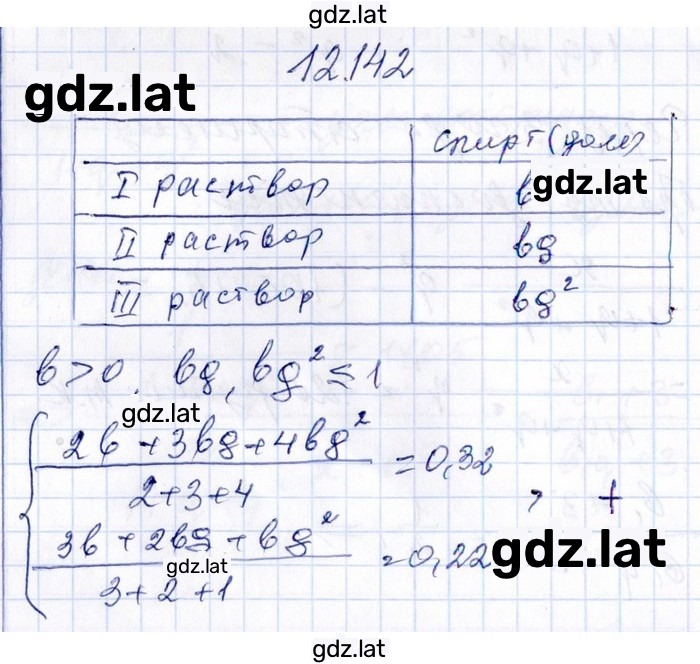 gdz.lat
12.142
gdz.lat
спирт (доля)
I раствор b gdz.lat
II раствор bg
III раствор bg²
b > 0. bg, bg² ≤ 1
gdz.lat
2b + 3bg + 4bg² = 0,32
2+3+4
, +
3b + 2bg + bg² = 0,22
gdz.lat
gdz.lat
3+2+1
gdz.lat